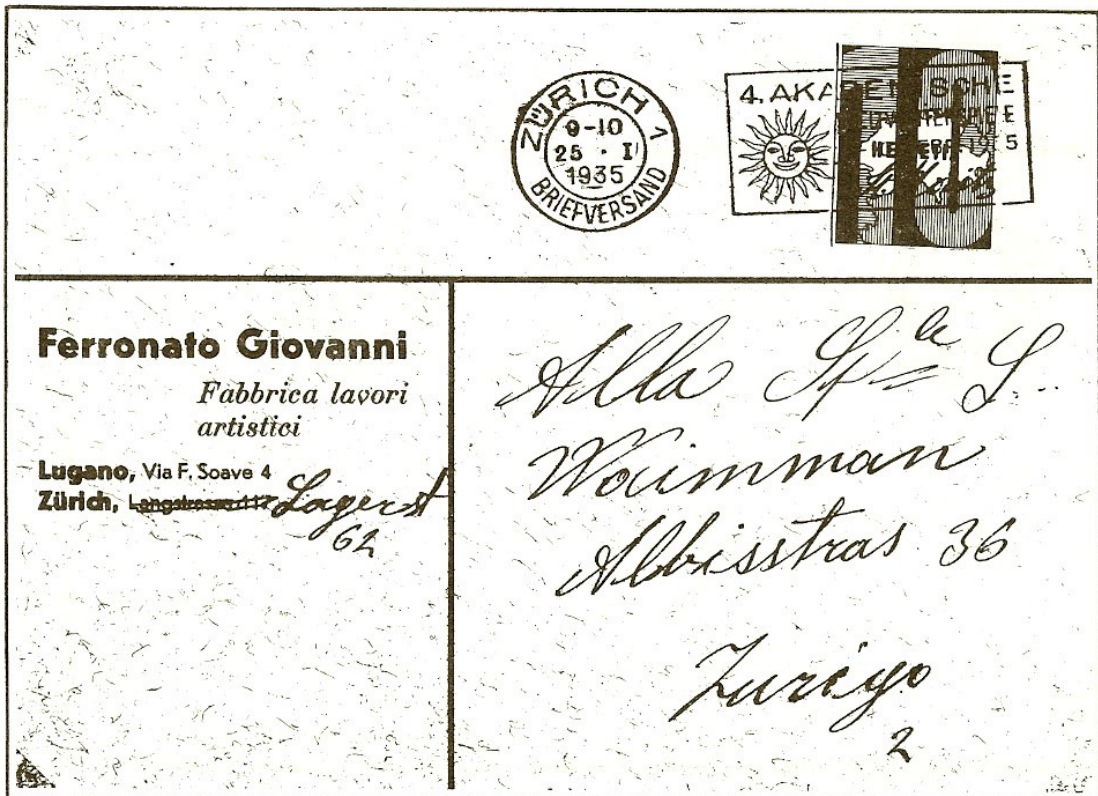 ZÜRICH 1
9-10
25 • I
1935
BRIEFVERSAND
4. AKADEMISCHE
Ferronato Giovanni
Fabbrica lavori
artistici
Lugano, Via F. Soave 4
Zürich, Langstrasse 117 Lagerst
62
Alla Sple S.
Waimman
Albisstras 36
Zurigo
2